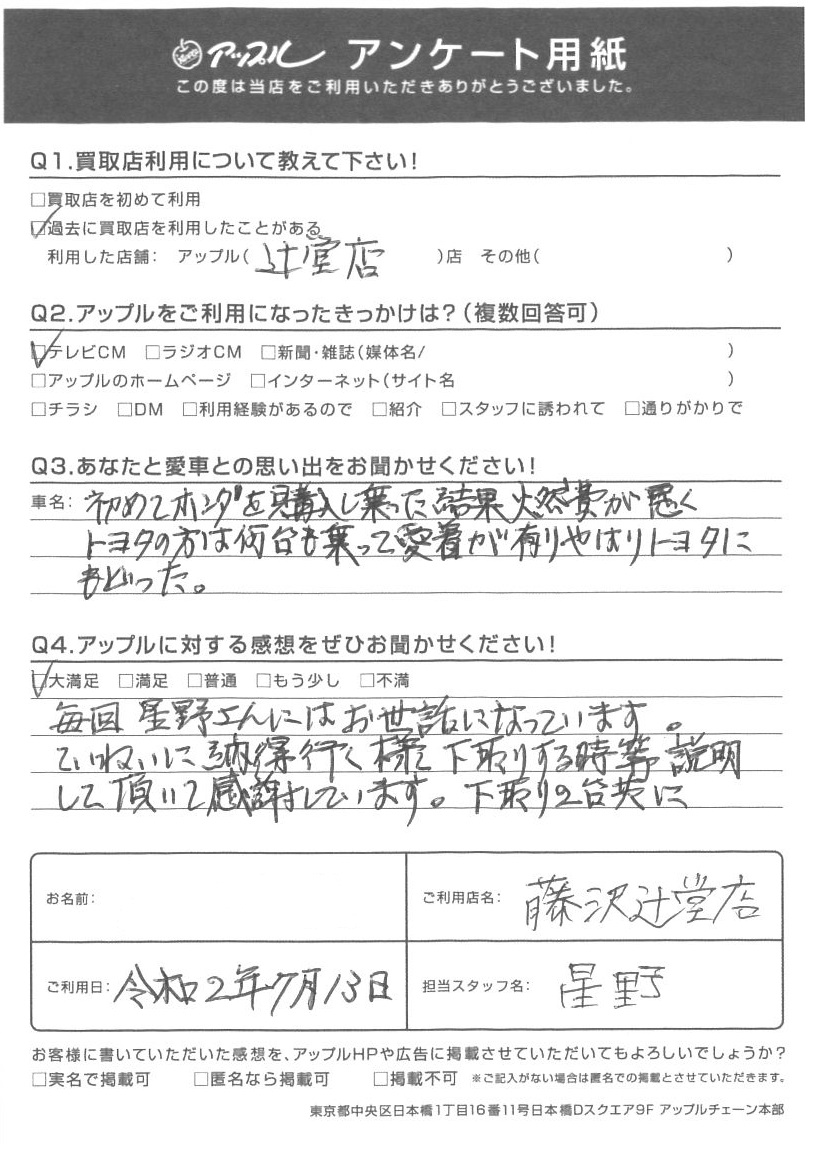 アップル アンケート用紙
この度は当店をご利用いただきありがとうございました。
Q1.買取店利用について教えて下さい!
□買取店を初めて利用
☑過去に買取店を利用したことがある
利用した店舗: アップル(辻堂店)店 その他( )
Q2.アップルをご利用になったきっかけは?(複数回答可)
☑テレビCM □ラジオCM □新聞・雑誌(媒体名/ )
□アップルのホームページ □インターネット(サイト名 )
□チラシ □DM □利用経験があるので □紹介 □スタッフに誘われて □通りがかりで
Q3.あなたと愛車との思い出をお聞かせください!
車名: 初めてホンダを購入し乗った結果燃費が悪く
トヨタの方は何台も乗って愛着が有りやはりトヨタに
もどった。
Q4.アップルに対する感想をぜひお聞かせください!
☑大満足 □満足 □普通 □もう少し □不満
毎回星野さんにはお世話になっています。
ていねいに納得行く様に下取りする時等説明
して頂いて感謝しています。下取り2台共に
お名前:
ご利用店名: 藤沢辻堂店
ご利用日: 令和2年7月13日
担当スタッフ名: 星野
お客様に書いていただいた感想を、アップルHPや広告に掲載させていただいてもよろしいでしょうか?
□実名で掲載可 □匿名なら掲載可 □掲載不可 ※ご記入がない場合は匿名での掲載とさせていただきます。
東京都中央区日本橋1丁目16番11号日本橋Dスクエア9F アップルチェーン本部